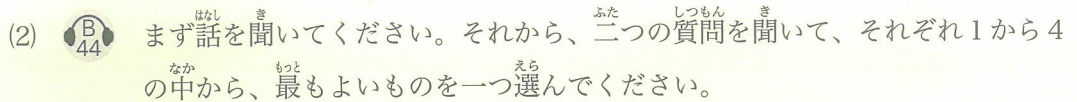 (2) B 44 まず話を聞いてください。それから、二つの質問を聞いて、それぞれ1から4
の中から、最もよいものを一つ選んでください。